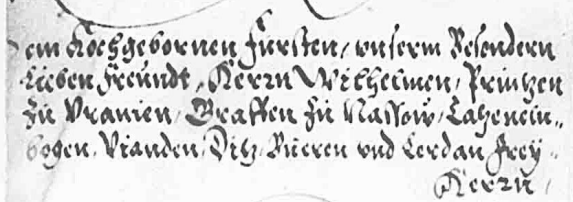 em Hochgebornen Fürsten, vnserm Besondern
Lieben Freundt, Herrn Wilhelmen, Printzen
zu Vranien, Graffen zu Nassow, Catzenein„
bogen, Vianden, Ditz, Büeren vnd Lerdan, Frey„
Herrn,